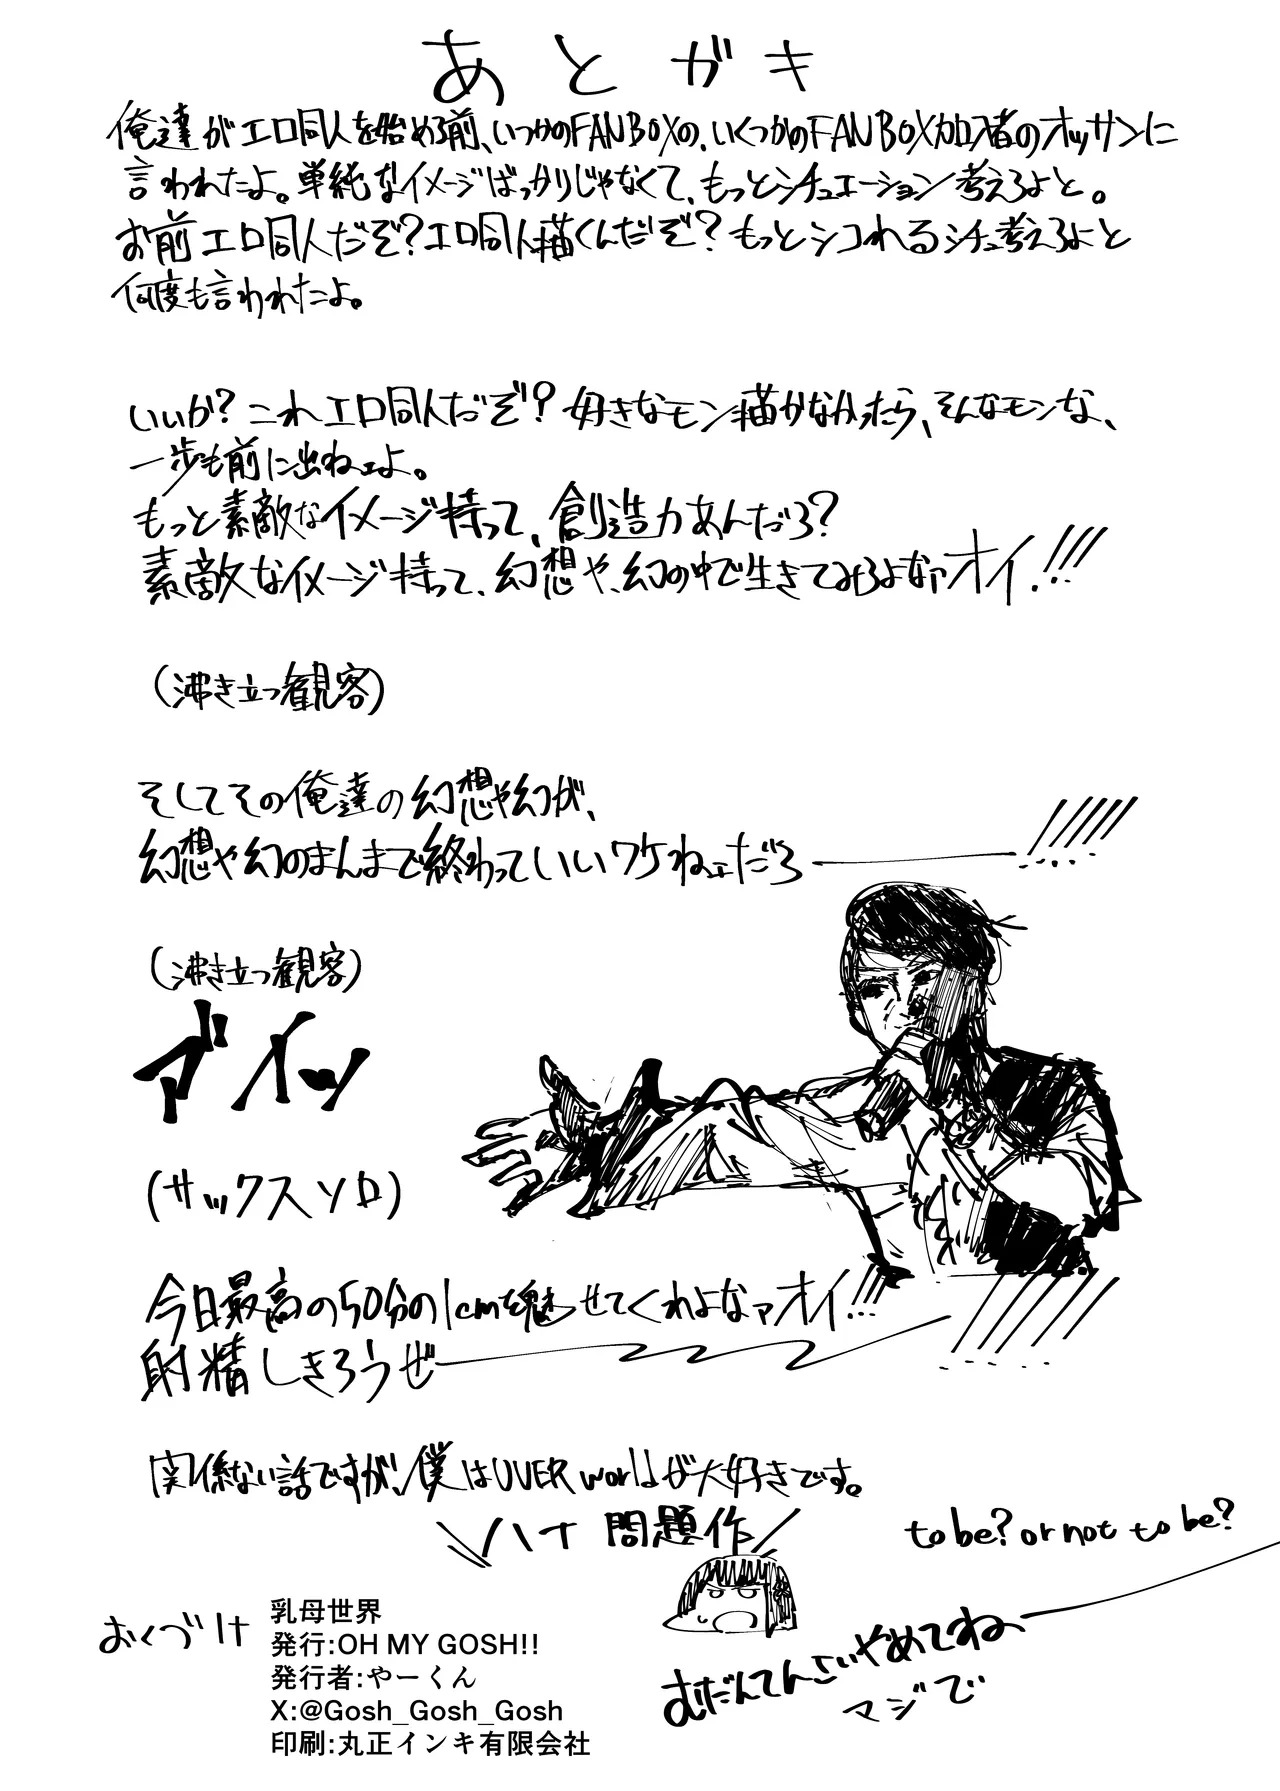 あとがき
俺達がエロ同人を始める前、いつかのFANBOXの、いくつかのFANBOX加入者のオッサンに
言われたよ。単純なイメージばっかりじゃなくて、もっとシチュエーション考えろよと。
お前エロ同人だぞ?エロ同人描くんだぞ?もっとシコれるシチュ考えろよと
何度も言われたよ。
いいか?これエロ同人だぞ?好きなモン描かなかったら、そんなモンな、
一歩も前に出ねェよ。
もっと素敵なイメージ持って、創造力あんだろ?
素敵なイメージ持って、幻想や、幻の中で生きてみろよなァオイ!!!
(沸き立つ観客)
そしてその俺達の幻想や幻が、
幻想や幻のまんまで終わっていいワケねェだろ――!!!!!
(沸き立つ観客)
マイッ
(サックスソロ)
今日最高の50分の1cmを魅せてくれよなァオイ!!!
射精しきろうぜ――!!!!
関係ない話ですが、僕はUVERworldが大好きです。
\ハナ問題作/
to be? or not to be?
むだんてんさいやめてね
マジで
おくづけ
乳母世界
発行:OH MY GOSH!!
発行者:やーくん
X:@Gosh_Gosh_Gosh
印刷:丸正インキ有限会社